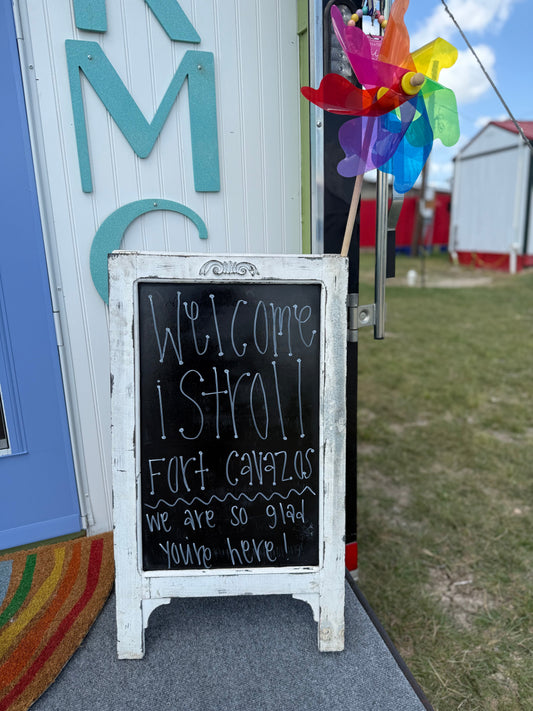 M
Welcome
iStroll
Fort Cavazos
we are so glad
you're here!